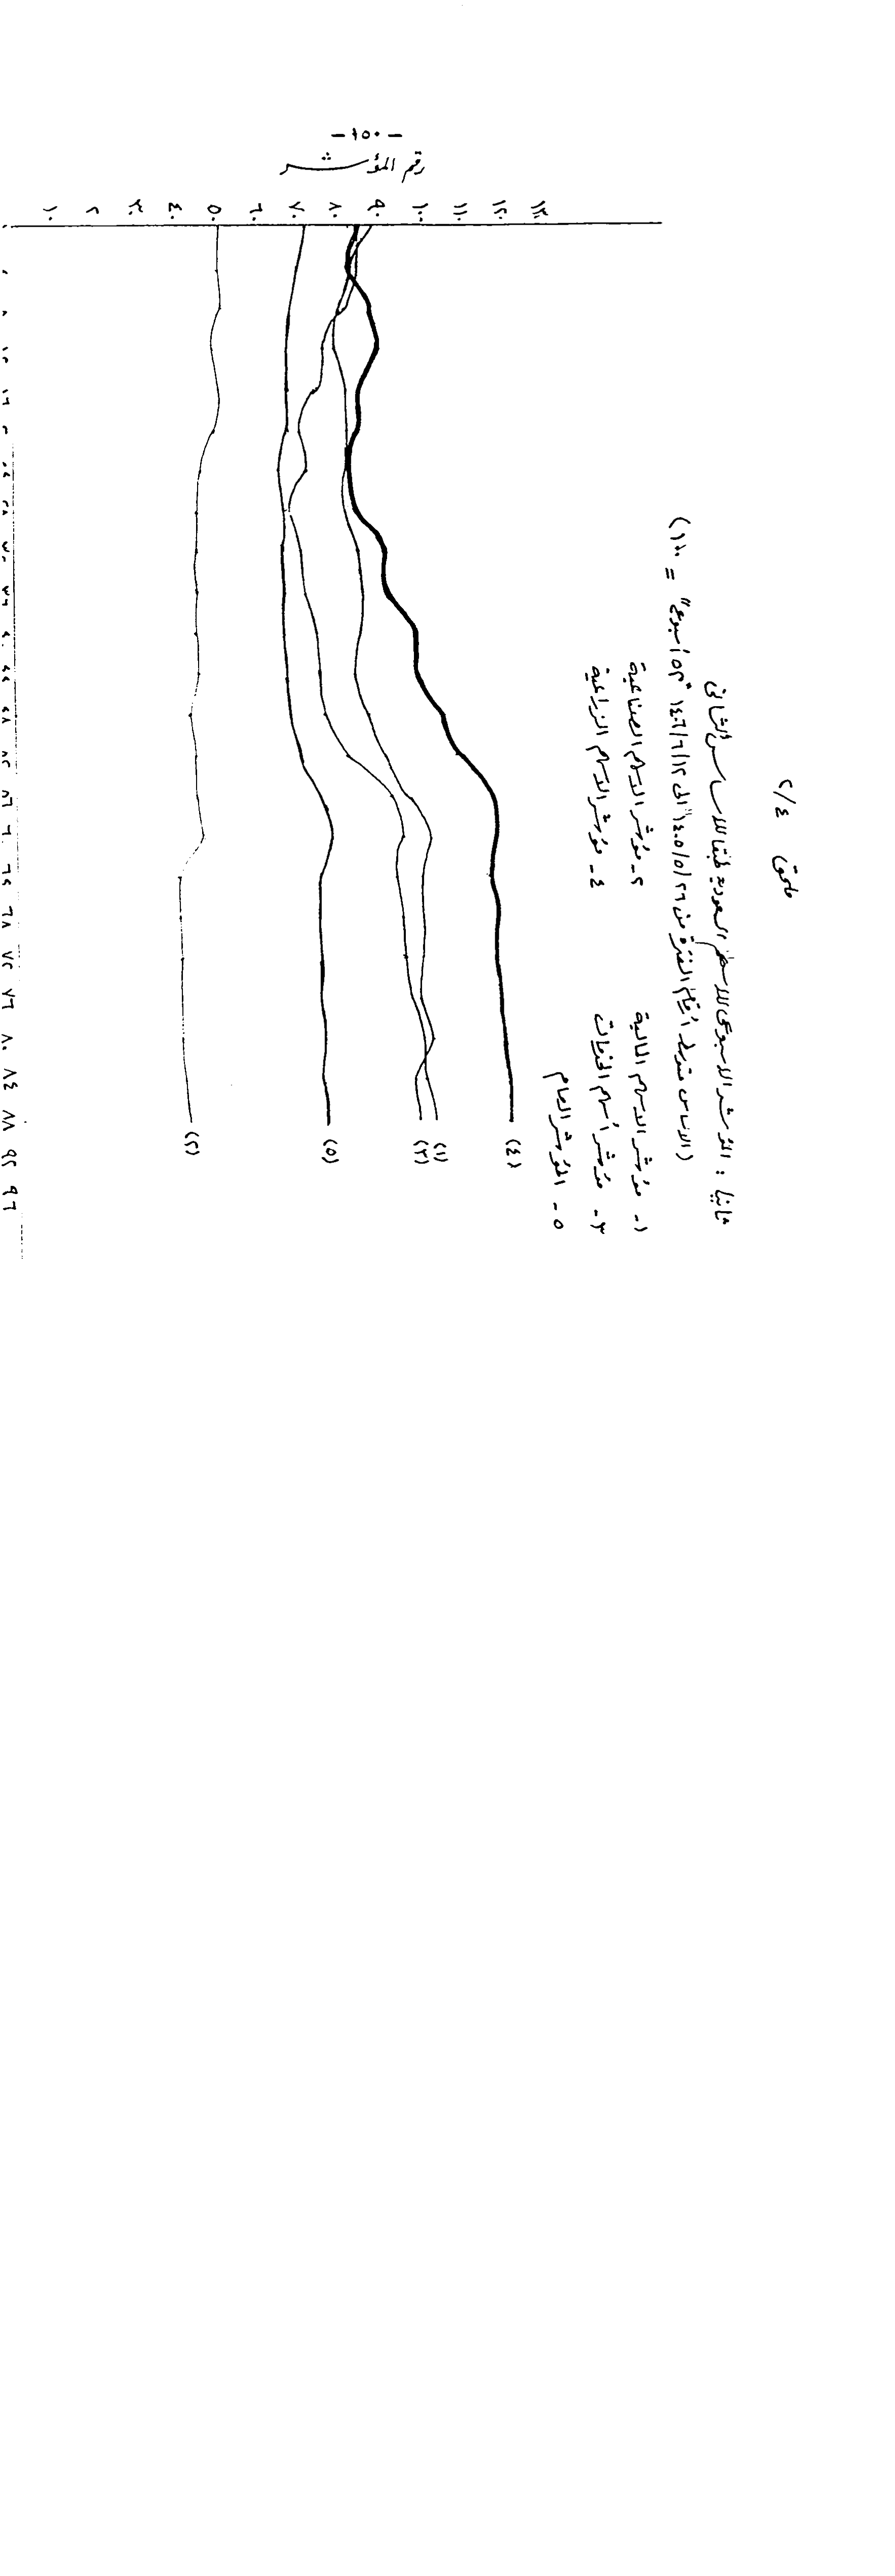 - ٢٥٠ -
ملحق ٢/٤
ثانيا : المؤشر الاسبوعى للاسهم السعودية طبقا للاساس الثانى
( الاساس متوسط أرقام الفترة من ١٤٠٥/٥/٢٦ الى ١٤٠٦/٦/١٢ "٥٣ أسبوع" = ١٠٠ )
١- مؤشر الاسهم المالية ٢- مؤشر الاسهم الصناعية
٣- مؤشر أسهم الخدمات ٤- مؤشر الاسهم الزراعية
٥- المؤشر العام
رقم المؤشر
١٣٠
١٢٠
١١٠
١٠٠
٩٠
٨٠
٧٠
٦٠
٥٠
٤٠
٣٠
١٠
(٤)
(١)
(٣)
(٥)
(٢)
٦٤ ٦٨ ٧٢ ٧٦ ٨٠ ٨٤ ٨٨ ٩٢ ٩٦